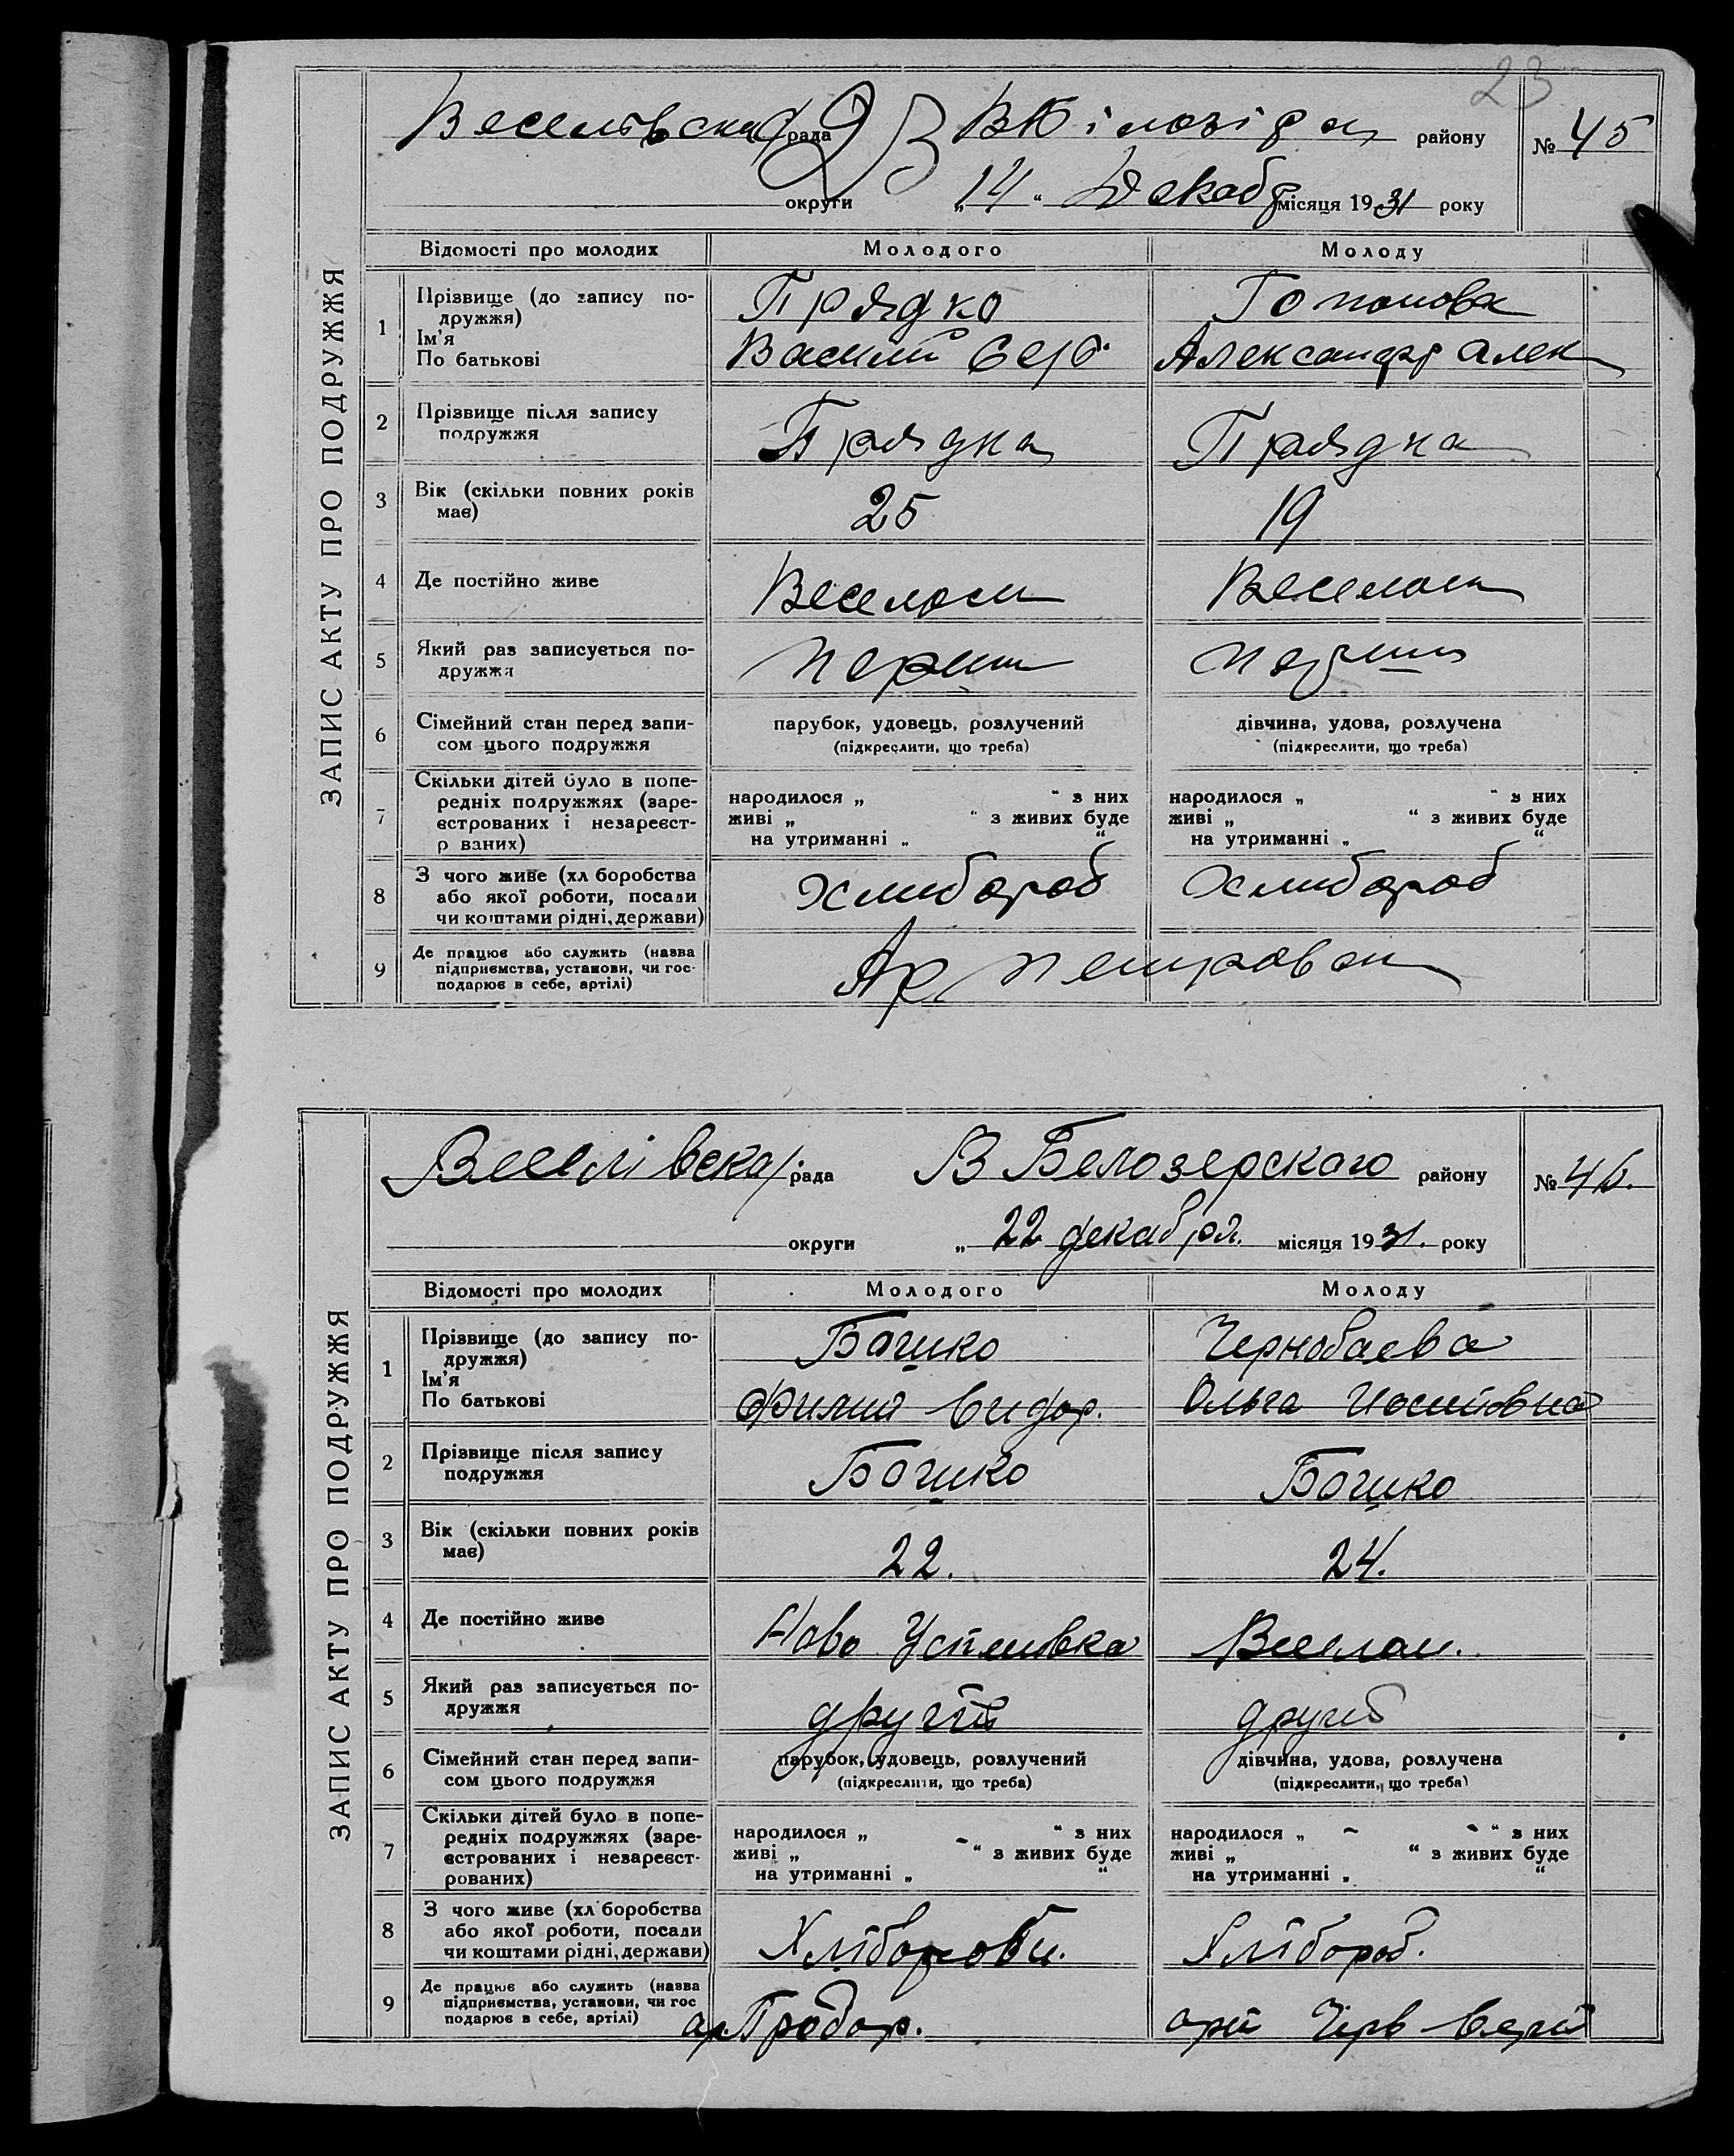 23
Веселівська рада 23 ВБілозірск району № 45
округи „14“ Декабр місяця 1931 року
ЗАПИС АКТУ ПРО ПОДРУЖЖЯ
Відомості про молодих Молодого Молоду
1 Прізвище (до запису по-
дружжя)
Ім'я
По батькові
Прядко
Василий
Александр Алек
2 Прізвище після запису
подружжя
Прядка Прядка
3 Вік (скільки повних років
має)
25 19
4 Де постійно живе
5 Який раз записується по-
дружжя
перши перши
6 Сімейний стан перед запи-
сом цього подружжя
парубок, удовець, розлучений
(підкреслити, що треба)
дівчина, удова, розлучена
(підкреслити, що треба)
7 Скільки дітей було в попе-
редніх подружжях (заре-
єстрованих і незареєст-
р ваних)
народилося „ “ з них
живі „ “ з живих буде
на утриманні „ “
народилося „ “ з них
живі „ “ з живих буде
на утриманні „ “
8 З чого живе (хл боробства
або якої роботи, посади
чи коштами рідні, держави)
Хлибороб Хлибороб
9 Де працює або служить (назва
підприємства, установи, чи гос-
подарює в себе, артілі)
Ар Петровск
Веселівська рада В Белозерского району № 46.
округи „ 22 декабря. місяця 1931. року
ЗАПИС АКТУ ПРО ПОДРУЖЖЯ
Відомості про молодих Молодого Молоду
1 Прізвище (до запису по-
дружжя)
Ім'я
По батькові
Божко Чернобаева
Филип Сидор. Ольга Иосиповна
2 Прізвище після запису
подружжя
Божко Божко
3 Вік (скільки повних років
має)
22. 24.
4 Де постійно живе
Ново Успеновка
5 Який раз записується по-
дружжя
другій другий
6 Сімейний стан перед запи-
сом цього подружжя
парубок, удовець, розлучений
(підкреслити, що треба)
дівчина, удова, розлучена
(підкреслити, що треба)
7 Скільки дітей було в попе-
редніх подружжях (заре-
єстрованих і незареєст-
рованих)
народилося „ “ з них
живі „ – “ з живих буде
на утриманні „ “
народилося „ – “ з них
живі „ “ з живих буде
на утриманні „ “
8 З чого живе (хл боробства
або якої роботи, посади
чи коштами рідні, держави)
Хлібороб.
9 Де працює або служить (назва
підприємства, установи, чи гос
подарює в себе, артілі)
ар.